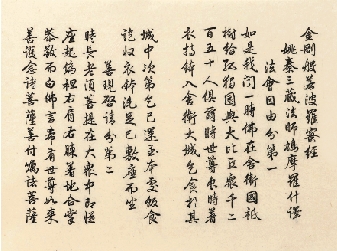 金剛般若波羅蜜經
姚秦三藏法師鳩摩羅什譯
法會因由分第一
如是我聞一時佛在舍衛國祇
樹給孤獨園與大比丘眾千二
百五十人俱爾時世尊食時着
衣持鉢入舍衛大城乞食於其
城中次第乞已還至本處飯食
訖收衣鉢洗足已敷座而坐
善現啓請分第二
時長老須菩提在大眾中即從
座起偏袒右肩右膝著地合掌
恭敬而白佛言希有世尊如來
善護念諸菩薩善付囑諸菩薩